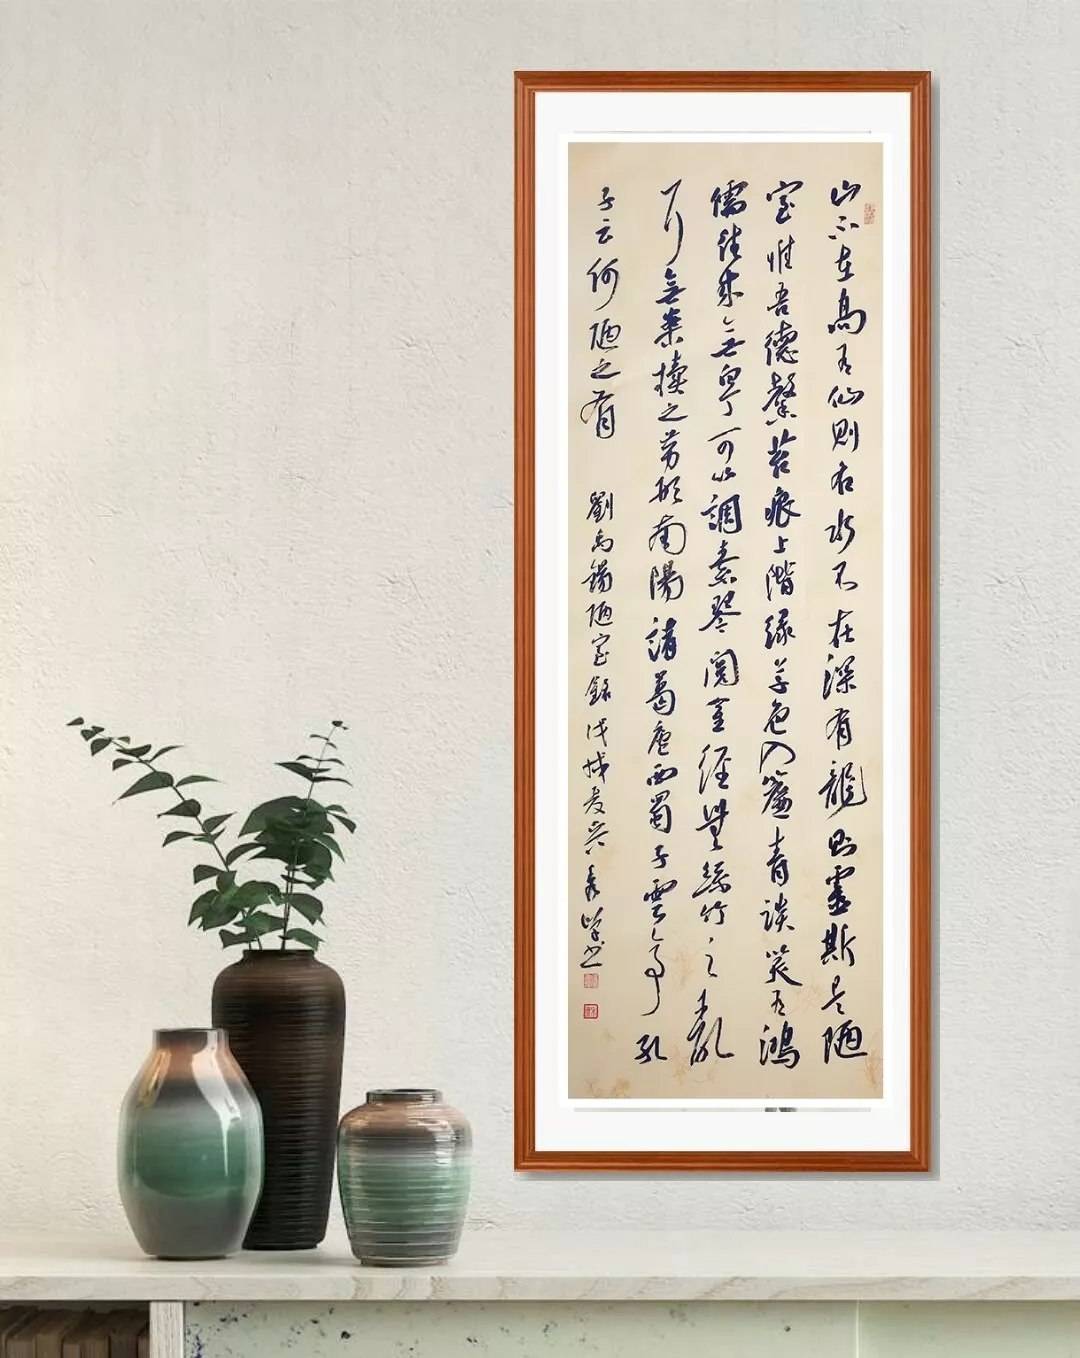 山不在高有仙則名水不在深有龍則靈斯是陋
室惟吾德馨苔痕上階綠草色入簾青談笑有鴻
儒往來無白丁可以調素琴閱金經無絲竹之亂
耳無案牘之勞形南陽諸葛廬西蜀子雲亭孔
子云何陋之有 劉禹錫陋室銘 戊戌夏